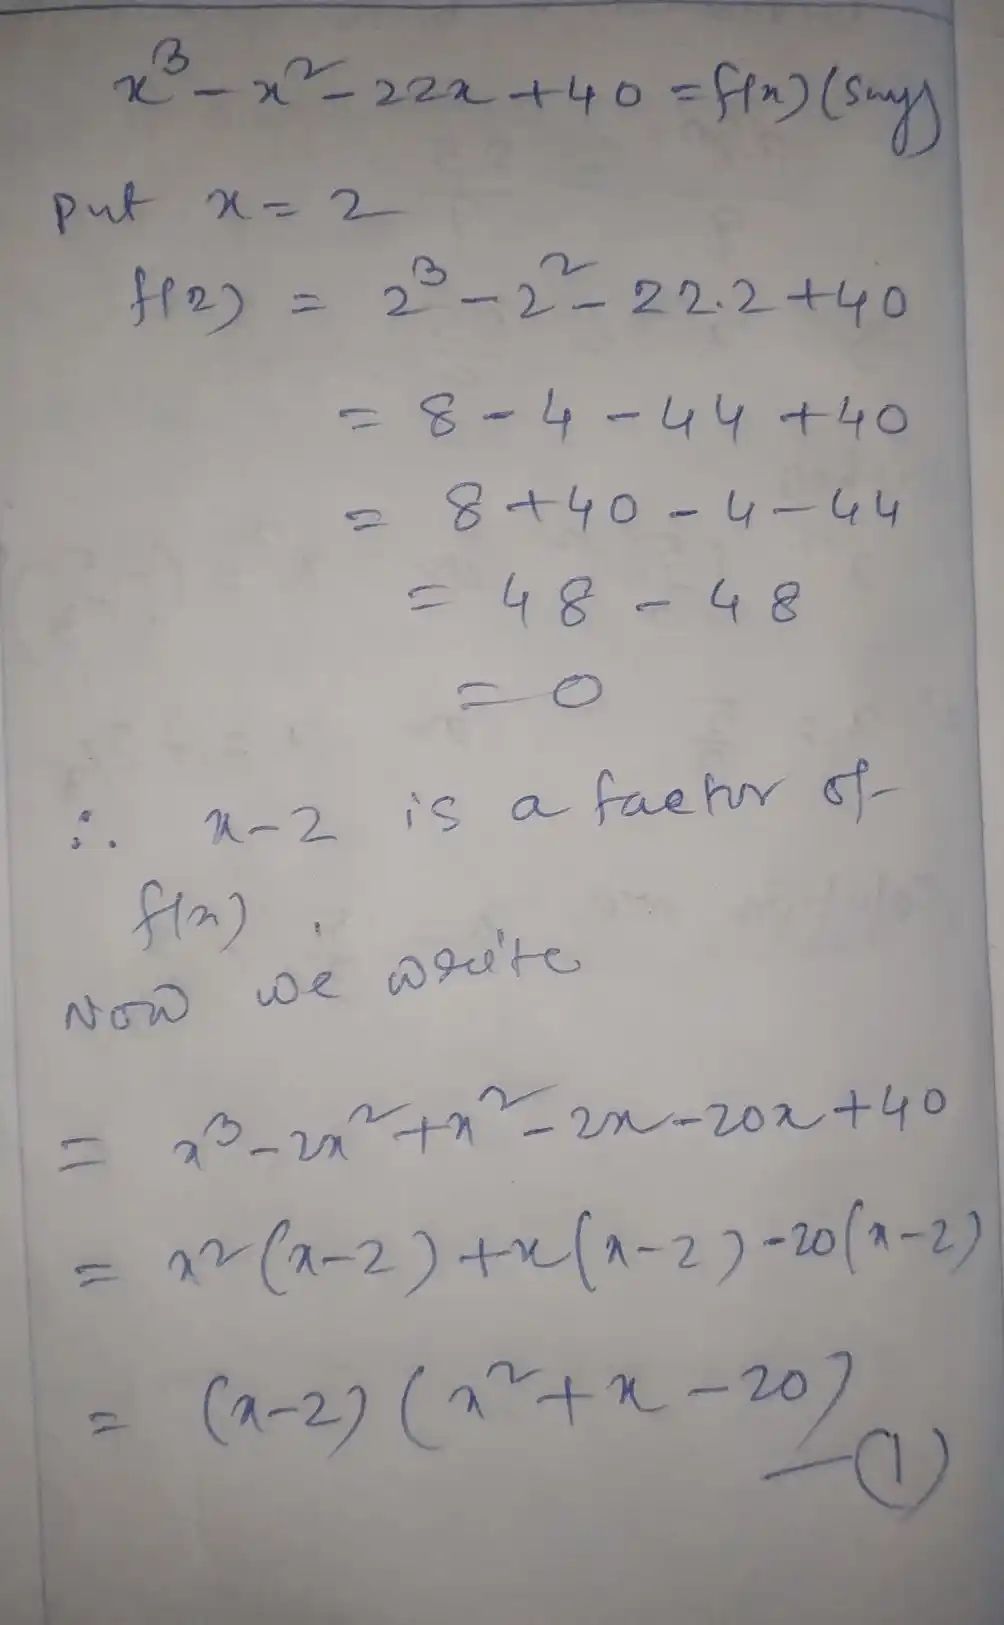 x³ - x² - 22x + 40 = f(x) (say)
put x = 2
f(2) = 2³ - 2² - 22.2 + 40
= 8 - 4 - 44 + 40
= 8 + 40 - 4 - 44
= 48 - 48
= 0
∴ x - 2 is a factor of
f(x).
Now we write
= x³ - 2x² + x² - 2x - 20x + 40
= x² (x - 2) + x (x - 2) - 20 (x - 2)
= (x - 2) (x² + x - 20)
— ①